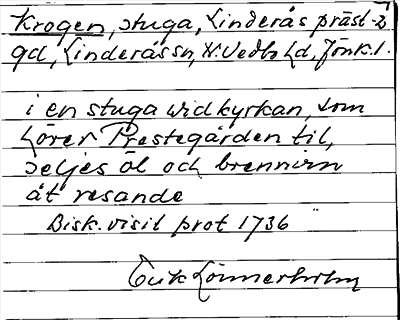 Krogen, stuga, Linderås präst-
gd, Linderås sn, N. Vedbo hd, Jönk. l.
i en stuga wid kyrkan, som
hörer Prestegården til,
seljes öl och brennvin
åt resande
Bisk. visit prot 1736
Erik Lönnerholm